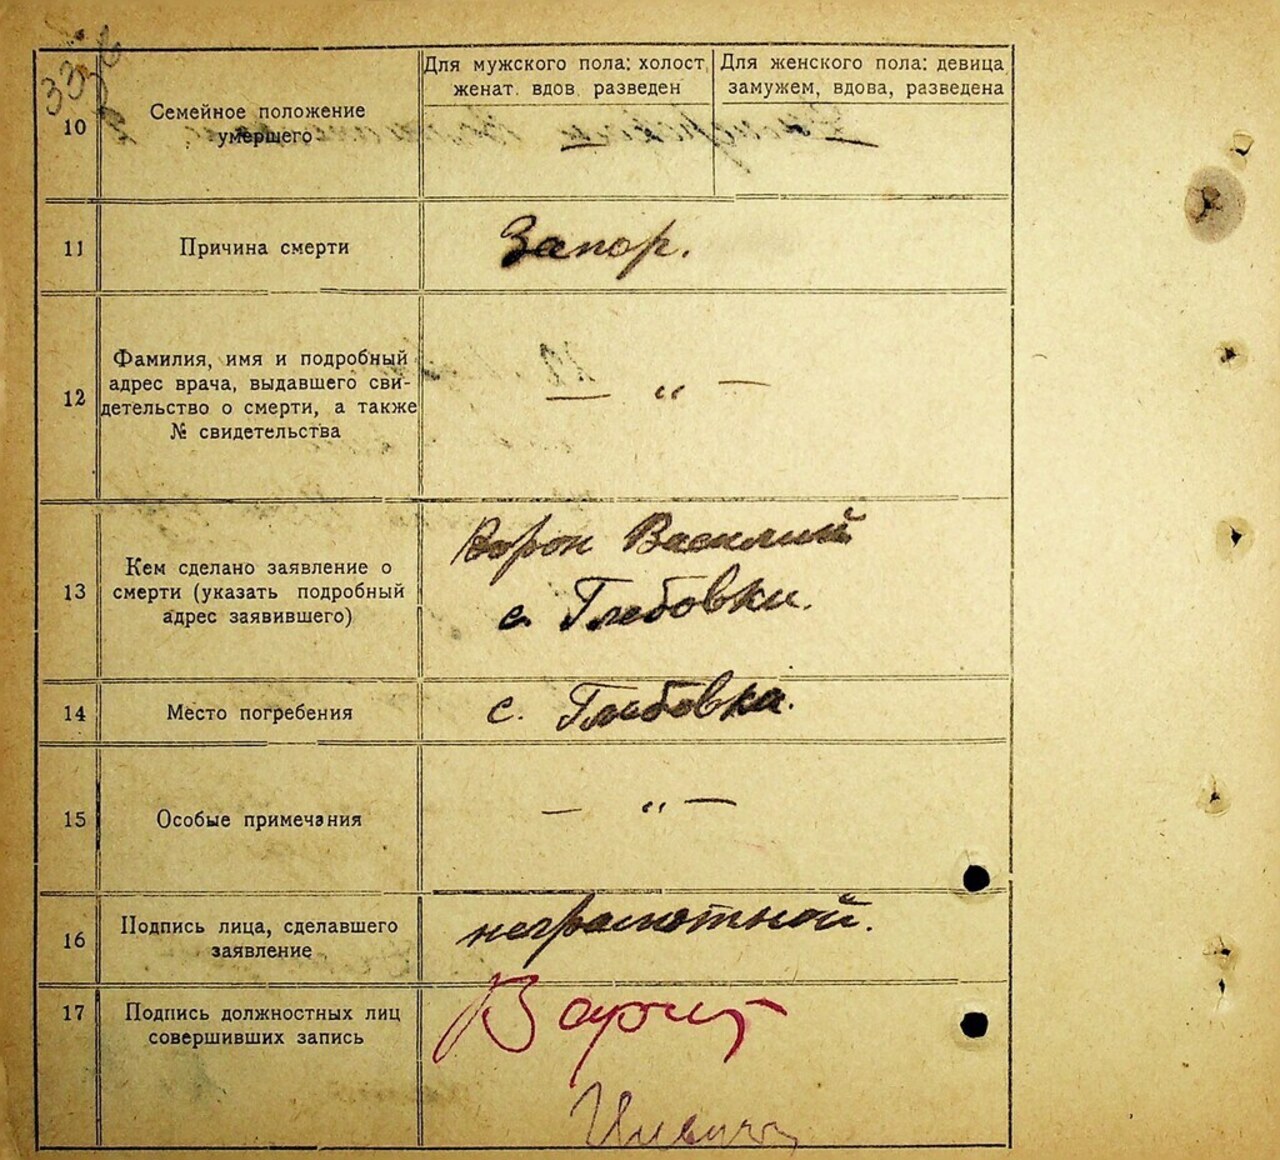 Для мужского пола: холост, женат. вдов. разведен
Для женского пола: девица замужем, вдова, разведена
10
Семейное положение
умершего
11
Причина смерти
Запор.
12
Фамилия, имя и подробный
адрес врача, выдавшего сви-
детельство о смерти, а также
№ свидетельства
— „ —
13
Кем сделано заявление о
смерти (указать подробный
адрес заявившего)
Ворон Василий
с. Глебовки.
14
Место погребения
с. Глебовка.
15
Особые примечания
— „ —
16
Подпись лица, сделавшего
заявление
неграмотной.
17
Подпись должностных лиц
совершивших запись